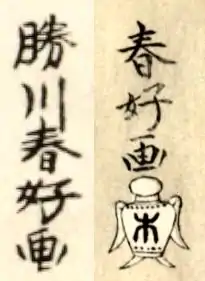 勝川春好画
春好画
林